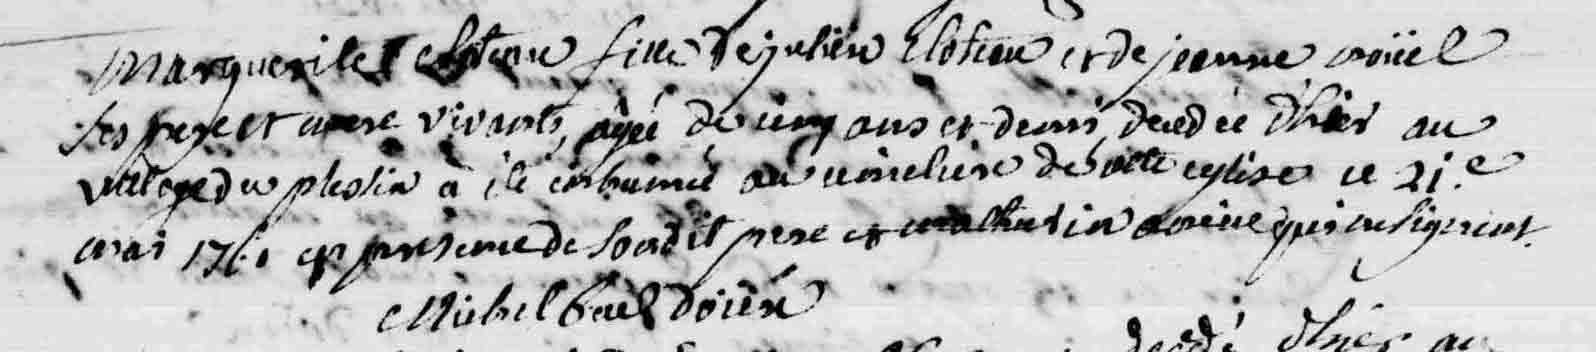 Marguerite cloteau fille de julien Cloteau et de jeanne
ses pere et mere vivants, agée de cinq ans et demi, decedée d'hier au
village du plessix a été inhumée au cimetiere de cette eglise ce 21.e
mai 1760 en presence de sondit pere et mathurin qui ne signent.
Michel
decedé d'hier au